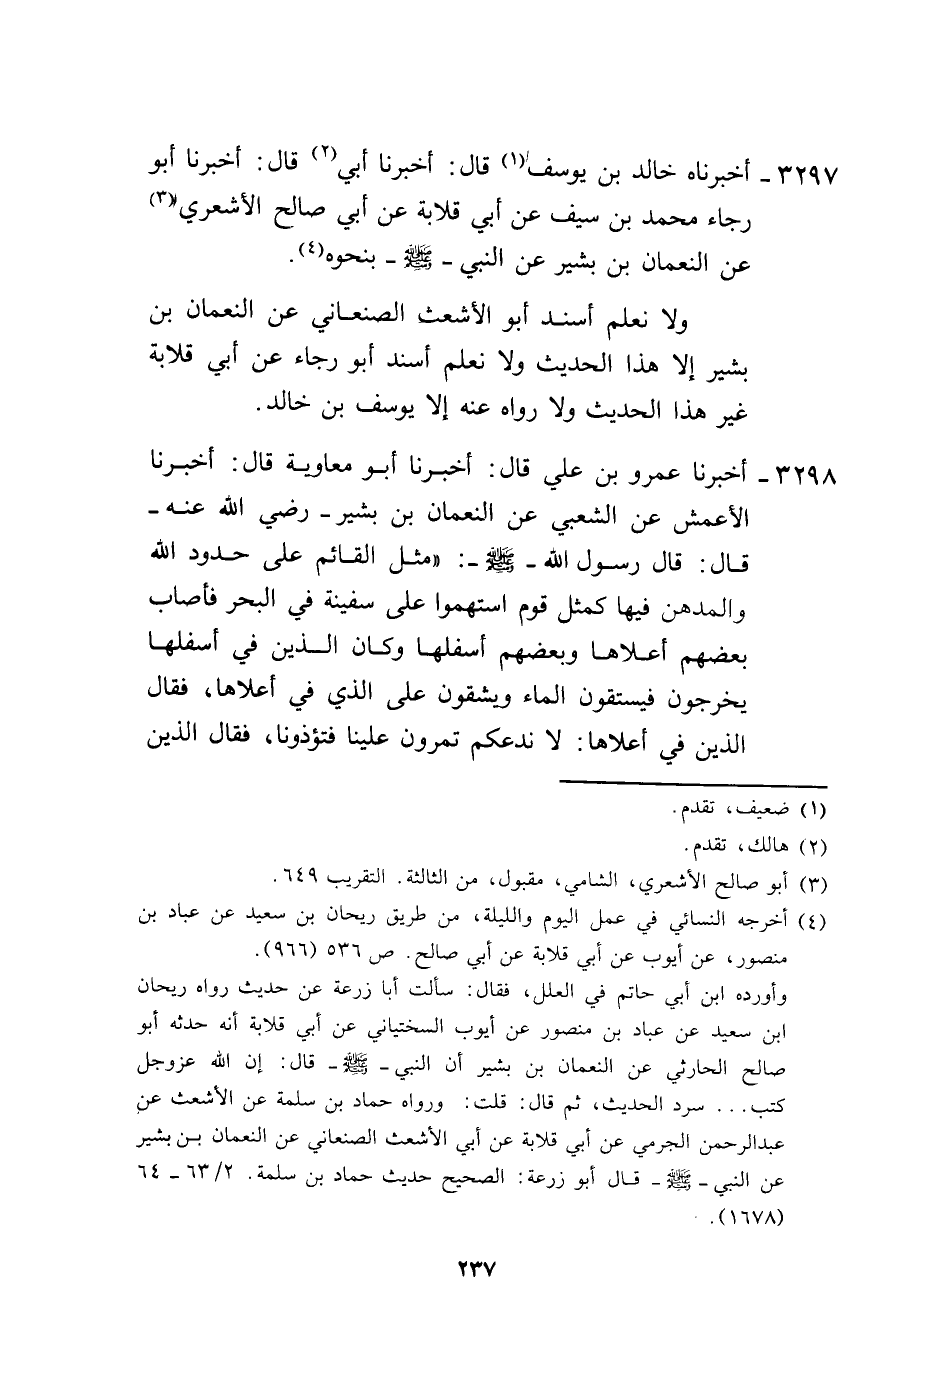 ٣٢٩٧ ـ أخبرناه خالد بن يوسف(١) قال: أخبرنا أبي(٢) قال: أخبرنا أبو
رجاء محمد بن سيف عن أبي قلابة عن أبي صالح الأشعري(٣)
عن النعمان بن بشير عن النبي ـ ﷺ ـ بنحوه(٤).
ولا نعلم أسند أبو الأشعث الصنعاني عن النعمان بن
بشير إلا هذا الحديث ولا نعلم أسند أبو رجاء عن أبي قلابة
غير هذا الحديث ولا رواه عنه إلا يوسف بن خالد.
٣٢٩٨ ـ أخبرنا عمرو بن علي قال: أخبرنا أبو معاوية قال: أخبرنا
الأعمش عن الشعبي عن النعمان بن بشير ـ رضي الله عنه ـ
قال: قال رسول الله ـ ﷺ ـ: «مثل القائم على حدود الله
والمدهن فيها كمثل قوم استهموا على سفينة في البحر فأصاب
بعضهم أعلاها وبعضهم أسفلها وكان الذين في أسفلها
يخرجون فيستقون الماء ويشقون على الذي في أعلاها، فقال
الذين في أعلاها: لا ندعكم تمرون علينا فتؤذونا، فقال الذين
(١) ضعيف، تقدم.
(٢) هالك، تقدم.
(٣) أبو صالح الأشعري، الشامي، مقبول، من الثالثة. التقريب ٦٤٩.
(٤) أخرجه النسائي في عمل اليوم والليلة، من طريق ريحان بن سعيد عن عباد بن
منصور، عن أيوب عن أبي قلابة عن أبي صالح. ص ٥٣٦ (٩٦٦).
وأورده ابن أبي حاتم في العلل، فقال: سألت أبا زرعة عن حديث رواه ريحان
ابن سعيد عن عباد بن منصور عن أيوب السختياني عن أبي قلابة أنه حدثه أبو
صالح الحارثي عن النعمان بن بشير أن النبي ـ ﷺ ـ قال: إن الله عزوجل
كتب... سرد الحديث، ثم قال: قلت: ورواه حماد بن سلمة عن الأشعث عن
عبدالرحمن الجرمي عن أبي قلابة عن أبي الأشعث الصنعاني عن النعمان بن بشير
عن النبي ـ ﷺ ـ قال أبو زرعة: الصحيح حديث حماد بن سلمة. ٢/ ٦٣ ـ ٦٤
(١٦٧٨).
٢٣٧